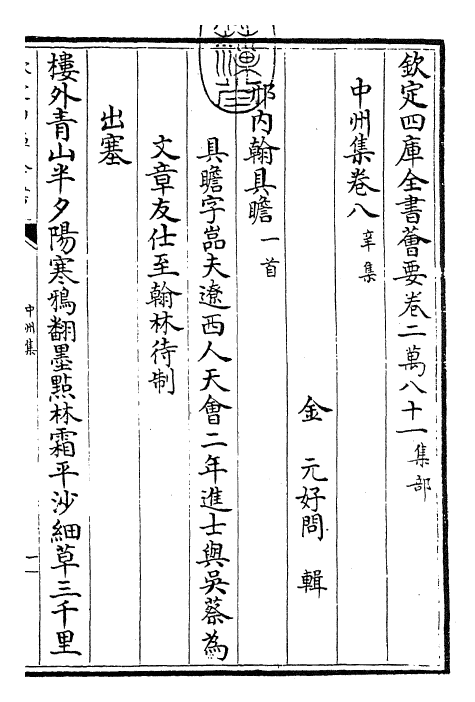 欽定四庫全書薈要卷二萬八十一 集部
中州集卷八 辛集
金 元好問 輯
邢內翰具瞻 一首
具瞻字嵓夫遼西人天會二年進士與吳蔡為
文章友仕至翰林待制
出塞
樓外青山半夕陽寒鴉翻墨點林霜平沙細草三千里
中州集
一